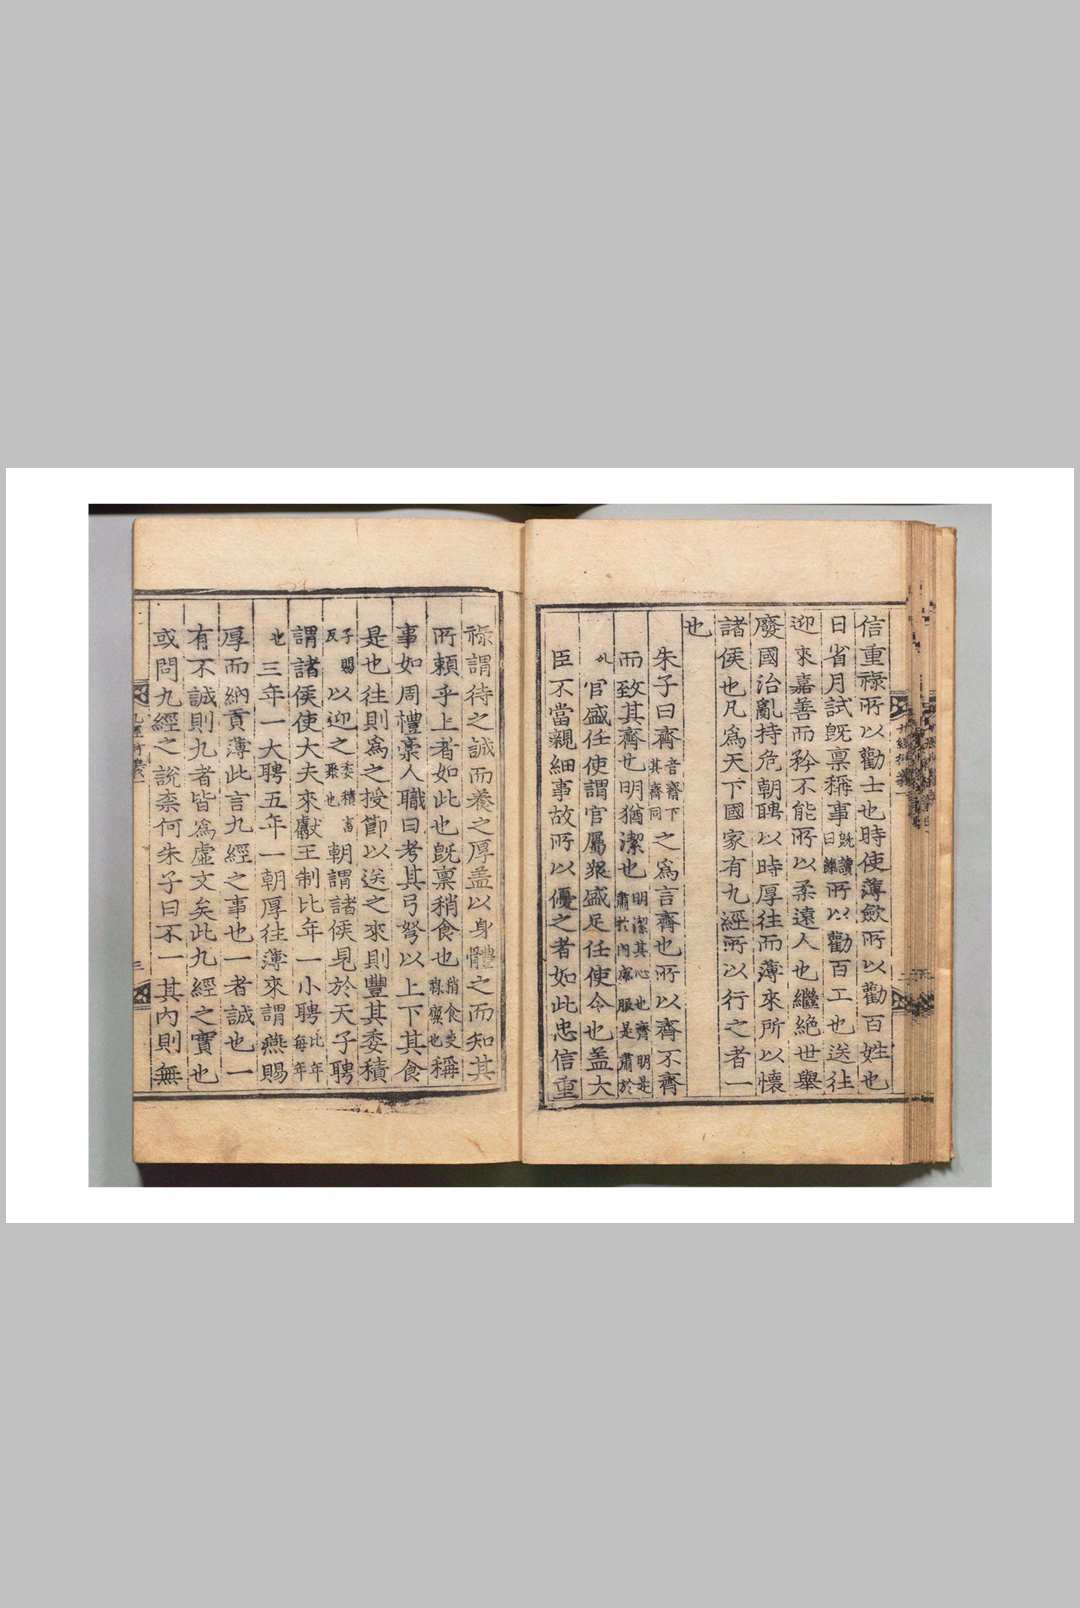 信重祿所以勸士也時使薄斂所以勸百姓也
日省月試旣禀稱事旣讀曰餼所以勸百工也送往
迎來嘉善而矜不能所以柔遠人也繼絶世舉
廢國治亂持危朝聘以時厚往而薄來所以懷
諸侯也凡爲天下國家有九經所以行之者一
也
朱子曰齊音齋下其齊同之爲言齊也所以齊不齊
而致其齊也明猶潔也明潔其心也齊明是肅於內盛服是肅於外
官盛任使謂官屬衆盛足任使令也盖大
臣不當親細事故所以優之者如此忠信重
祿謂待之誠而養之厚盖以身體之而知其
所賴乎上者如此也旣禀稍食也稍食支稱
事如周禮槀人職曰考其弓弩以上下其食
是也往則爲之授節以送之來則豐其委積
子賜反以迎之委積畜聚也朝謂諸侯見於天子聘
謂諸侯使大夫來獻王制比年一小聘比年每年
也三年一大聘五年一朝厚往薄來謂燕賜
厚而納貢薄此言九經之事也一者誠也一
有不誠則九者皆爲虛文矣此九經之實也
或問九經之說柰何朱子曰不一其內則無
三